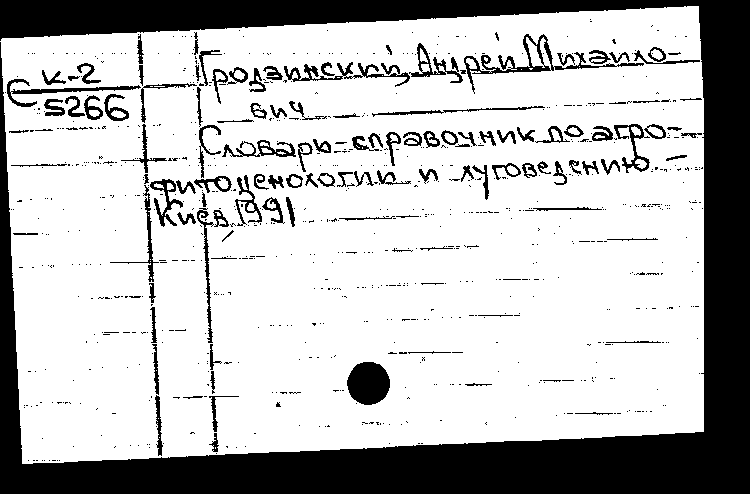 К-2
С 5266
Гродзинский, Андрей Михайло-
вич
Словарь-справочник по агро-
фитоценологии и луговедению. –
Киев, 1991